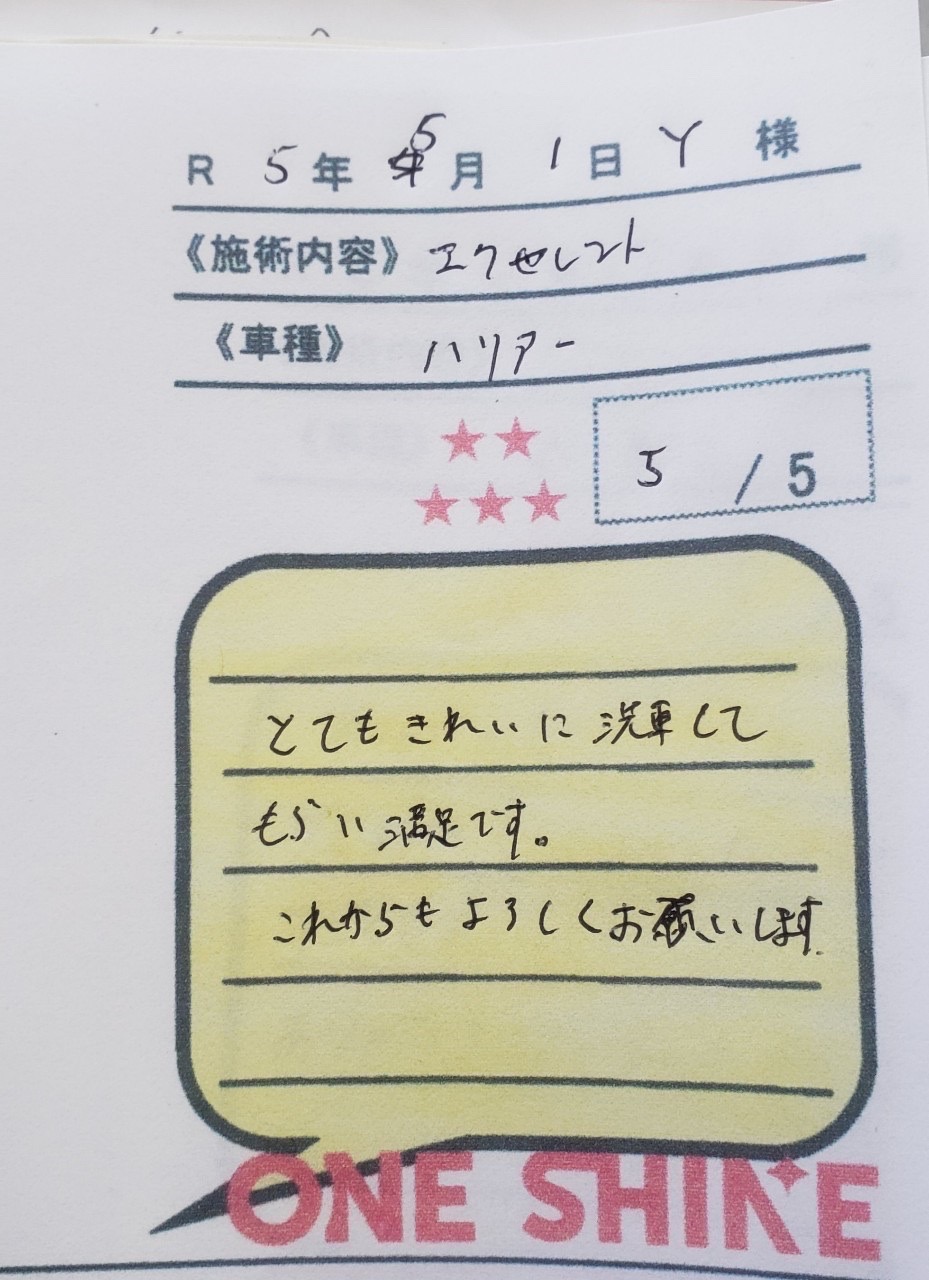 R 5年 5月 1日 Y 様
《施術内容》 エクセレント
《車種》 ハリアー
5 / 5
とてもきれいに洗車して
もらい満足です。
これからもよろしくお願いします.
ONE SHINE